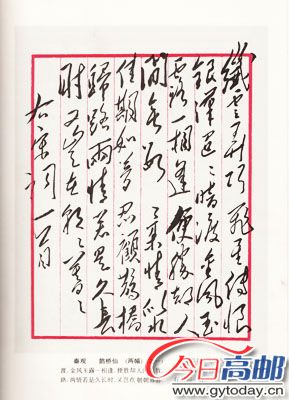 纖雲弄巧飛星傳恨
銀漢迢迢暗渡金風玉
露一相逢便勝却人
間無數柔情似水
佳期如夢忍顧鵲橋
歸路兩情若是久長
時又豈在朝朝暮暮
右宋詞一首
秦观 鹊桥仙 (两幅)
渡。金风玉露一相逢,便胜却人
路。两情若是久长时,又岂在朝朝暮
今日高邮
www.gytoday.cn